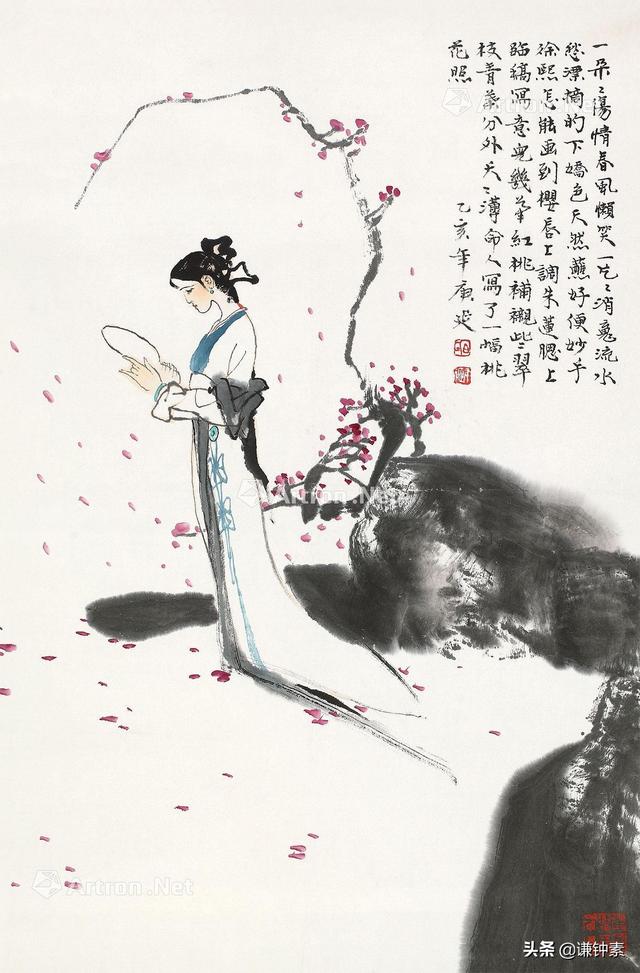 一朵〻傷情春風懶笑一片〻消魂流水
愁漂摘的下嬌色天然蘸好便妙手
徐熙怎能画到櫻唇上調朱蓮腮上
臨稿寫意兒幾筆紅桃補襯些〻翠
枝青葉分外夭〻薄命人寫了一幅桃
花照
乙亥年庚延
Artron.Net
Artron.Net
Artron.Net
头条 @谦钟素